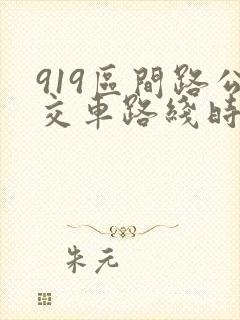 919區間路公
交車路綫時
朱元